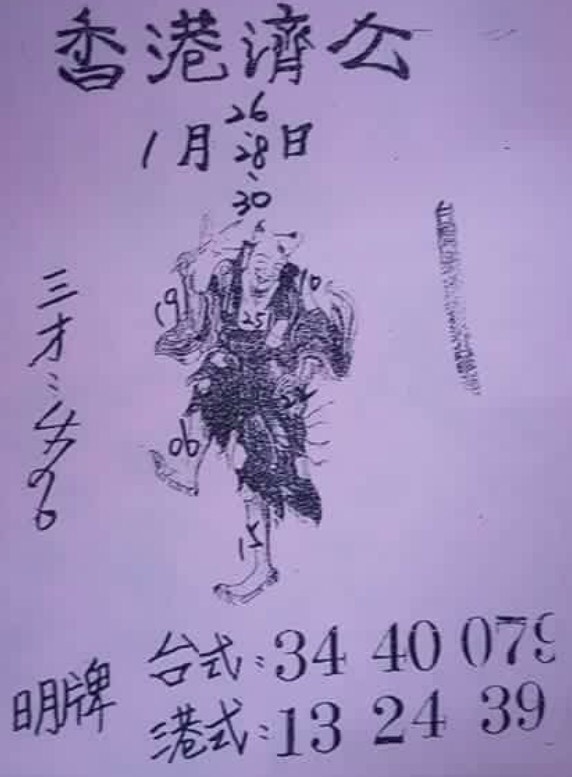 香港濟公
1月26、28、30日
三才：496
19
10
25
06
15
明牌
台式：34 40 079
港式：13 24 39